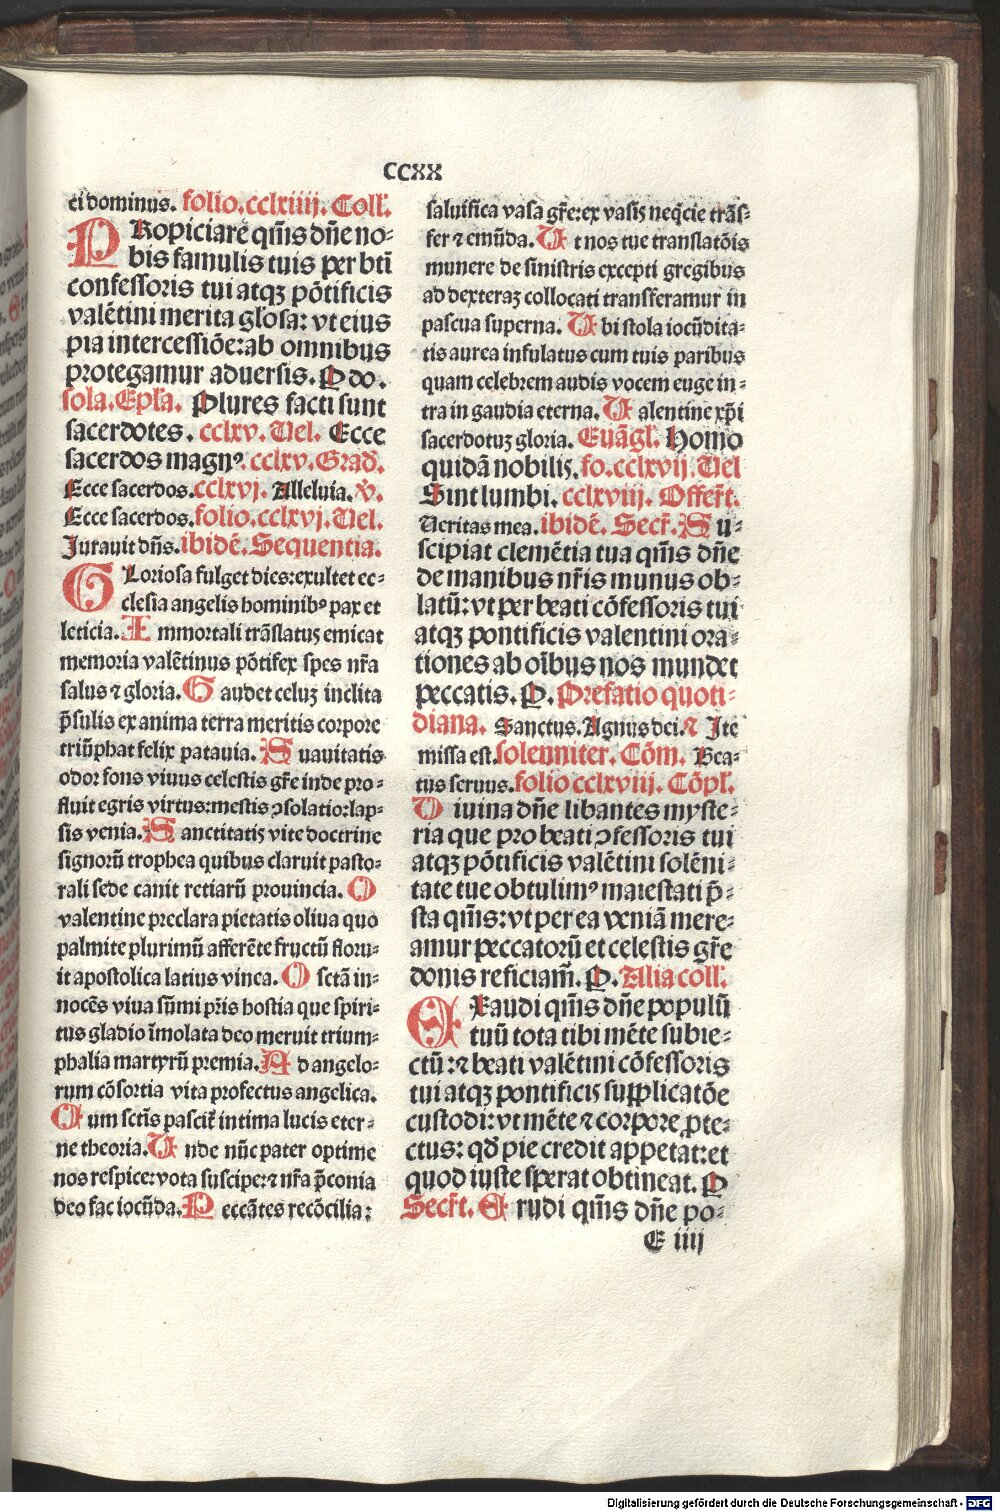 CCXX
ei dominus. folio.cclxiiij. Coll̃.
PRopiciare q̃m̃s dñe no⸗
bis famulis tuis per btĩ
confessoris tui atqꝫ põtificis
valẽtini merita glõsa: vt eius
pia intercessiõe:ab omnibus
protegamur aduersis. P do.
sola. Epl̃a. Plures facti sunt
sacerdotes. cclxv. Uel. Ecce
sacerdos magnꝰ. cclxv. Grad̃.
Ecce sacerdos. cclxvj. Alleluia. ꝟ.
Ecce sacerdos. folio. cclxvj. Uel.
Jurauit dñs. ibidẽ. Sequentia.
GLoriosa fulget dies: exultet ec⸗
clesia angelis hominibꝰ pax et
leticia. Immortali trãslatus emicat
memoria valẽtinus põtifex spes nr̃a
salus ⁊ gloria. Gaudet celuꝫ inclita
p̃sulis ex anima terra meritis corpore
triũphat felix patauia. Suauitatis
odor fons viuus celestis gr̃e inde pro⸗
fluit egris virtus: mestis ꝯsolatio: lap⸗
sis venia. Sanctitatis vite doctrine
signorũ trophea quibus claruit pasto⸗
rali sede canit retiarũ prouincia. O
valentine preclara pietatis oliua quo
palmite plurimũ afferẽte fructũ floru⸗
it apostolica latius vinea. O sctã in⸗
nocẽs viua sũmi pr̃is hostia que spiri⸗
tus gladio ĩmolata deo meruit trium⸗
phalia martyrũ premia. Ad angelo⸗
rum cõsortia vita profectus angelica.
Cum sctĩs pascit̃ intima lucis eter⸗
ne theoria. Unde nũc pater optime
nos respice: vota suscipe: ⁊ nr̃a p̃conia
deo fac iocũda. Peccãtes recõcilia:
saluifica vasa gr̃e: ex vasis neq̃cie trãs⸗
fer ⁊ emũda. Ut nos tue translatõis
munere de sinistris excepti gregibus
ad dexteraꝫ collocati transferamur in
pascua superna. Ubi stola iocũdita⸗
tis aurea infulatus cum tuis paribus
quam celebrem audis vocem euge in⸗
tra in gaudia eterna. Ualentine xp̃i
sacerdotuꝫ gloria. Euãgl̃. Homo
quidã nobilis. fo. cclxvij Uel
Sint lumbi. cclxviij. Offert̃.
Ueritas mea. ibidẽ. Secr̃. Su⸗
scipiat clemẽtia tua q̃m̃s dñe
de manibus nr̃is munus ob⸗
latũ: vt per beati cõfessoris tui
atqꝫ pontificis valentini ora⸗
tiones ab oĩbus nos mundet
peccatis. P. Prefatio quoti⸗
diana. Sanctus. Agnus dei. ⁊ Ite
missa est. solenniter. Cõm. Bea⸗
tus seruus. folio cclxviij. Cõpl̃.
Diuina dñe libantes myste⸗
ria que pro beati ꝯfessoris tui
atqꝫ põtificis valẽtini solẽni⸗
tate tue obtulimꝰ maiestati p̃⸗
sta q̃m̃s: vt per ea veniã mere⸗
amur peccatorũ et celestis gr̃e
donis reficiam̃. P. Alia coll̃.
EXaudi q̃m̃s dñe populũ
tuũ tota tibi mẽte subie⸗
ctũ: ⁊ beati valẽtini cõfessoris
tui atqꝫ pontificis supplicatõe
custodi: vt mẽte ⁊ corpore ꝓte⸗
ctus: qd̃ pie credit appetat: et
quod iuste sperat obtineat. P
Secrt̃. Erudi q̃m̃s dñe po⸗
E iiij
Digitalisierung gefördert durch die Deutsche Forschungsgemeinschaft - DFG